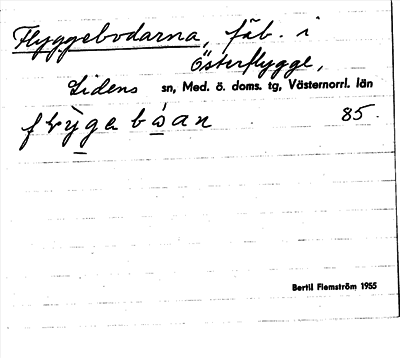 Flyggebodarna, fäb. i
Österflygge,
Lidens sn, Med. ö. doms. tg, Västernorrl. län
85.
Bertil Flemström 1955